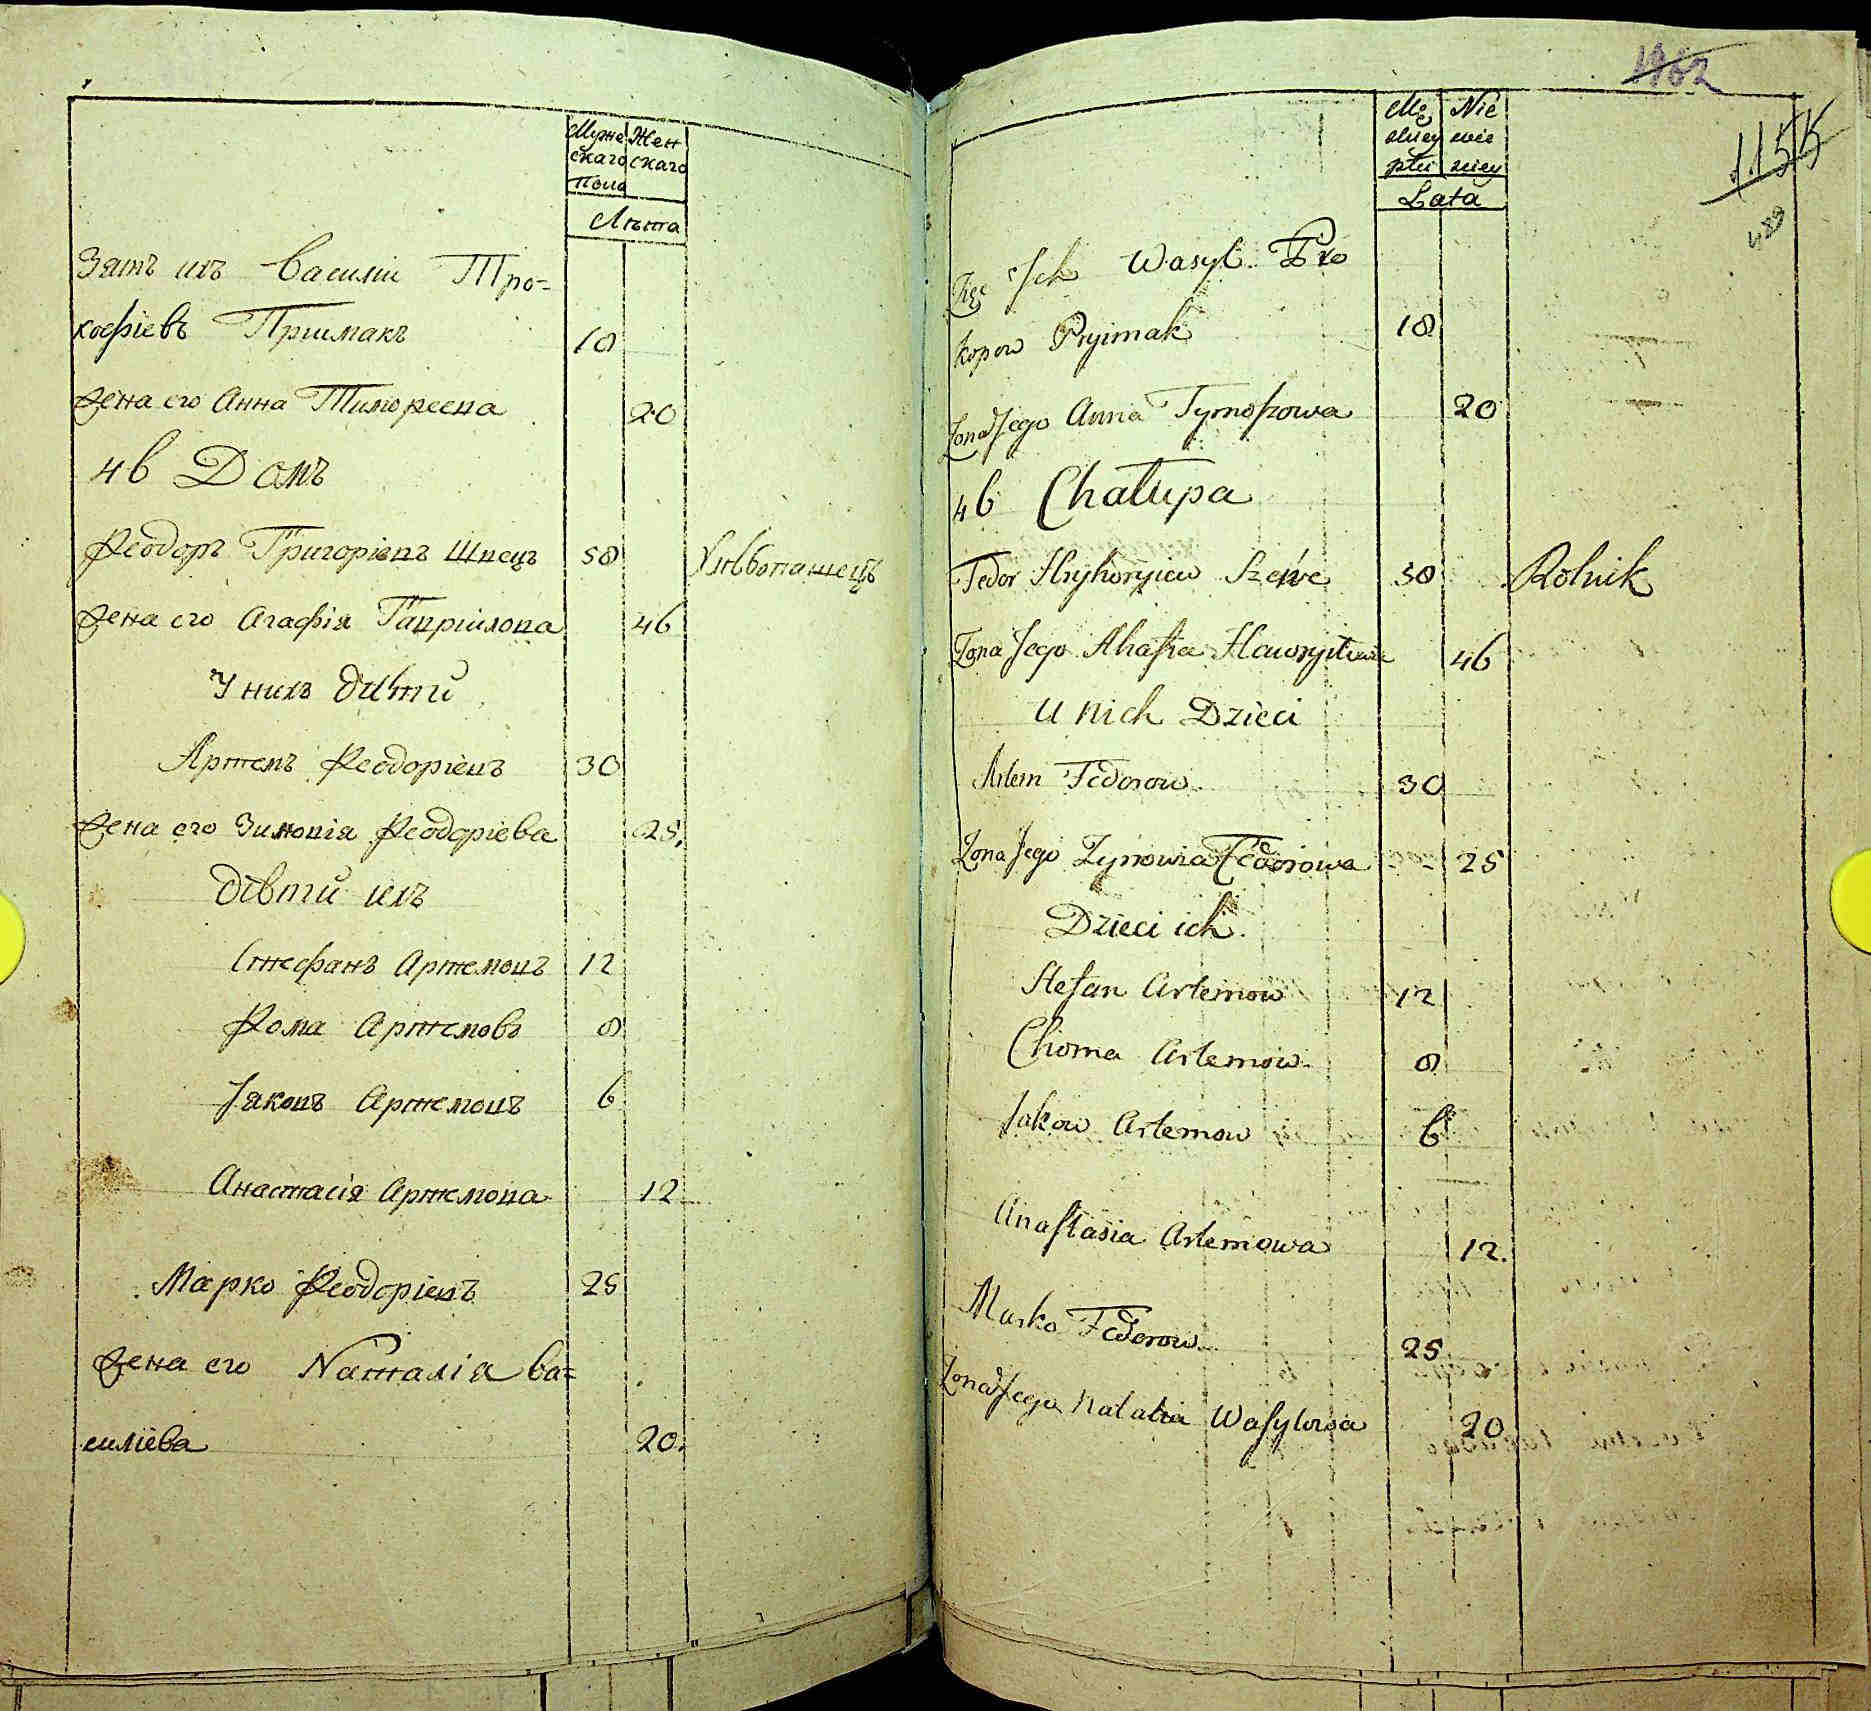 Муже Жен
скаго скаго
пола
Лѣта
Зять ихъ Василій Про=
кофіевъ Приймакъ 18
Жена его Анна Тимофеева 20
46 Домъ
Феодоръ Григоріевъ Швецъ 58 Хлѣбопашецъ
Жена его Агафія Гавріилова 46
У нихъ дѣти
Артемъ Феодоріевъ 30
Жена его Зиновія Феодоріева 25.
дѣти ихъ
Стефанъ Артемовъ 12
Фома Артемовъ 8
Іяковъ Артемовъ 6
Анастасія Артемова 12
Марко Феодоріевъ 25
Жена его Наталія Ва=
силіева 20.
1962
1155
489
Mę Nie
skiey wie
płci sciey
Lata
Zięć Ich Wasyl Pro
kopow Pryimak 18
Żona Jego Anna Tymoszowa 20
46 Chałupa
Fedor Hryhoryiew Szewc 58 Rolnik
Żona Jego Ahafia Hawryłowa 46
U nich Dzieci
Artem Fedorow 30
Żona Jego Zynowia Fedorowa 25
Dzieci ich.
Stefan Artemow 12
Choma Artemow 8
Jakow Artemow 6
Anastasia Artemowa 12.
Marko Fedorow 25
Żona Jego Natalia Wasylowa 20